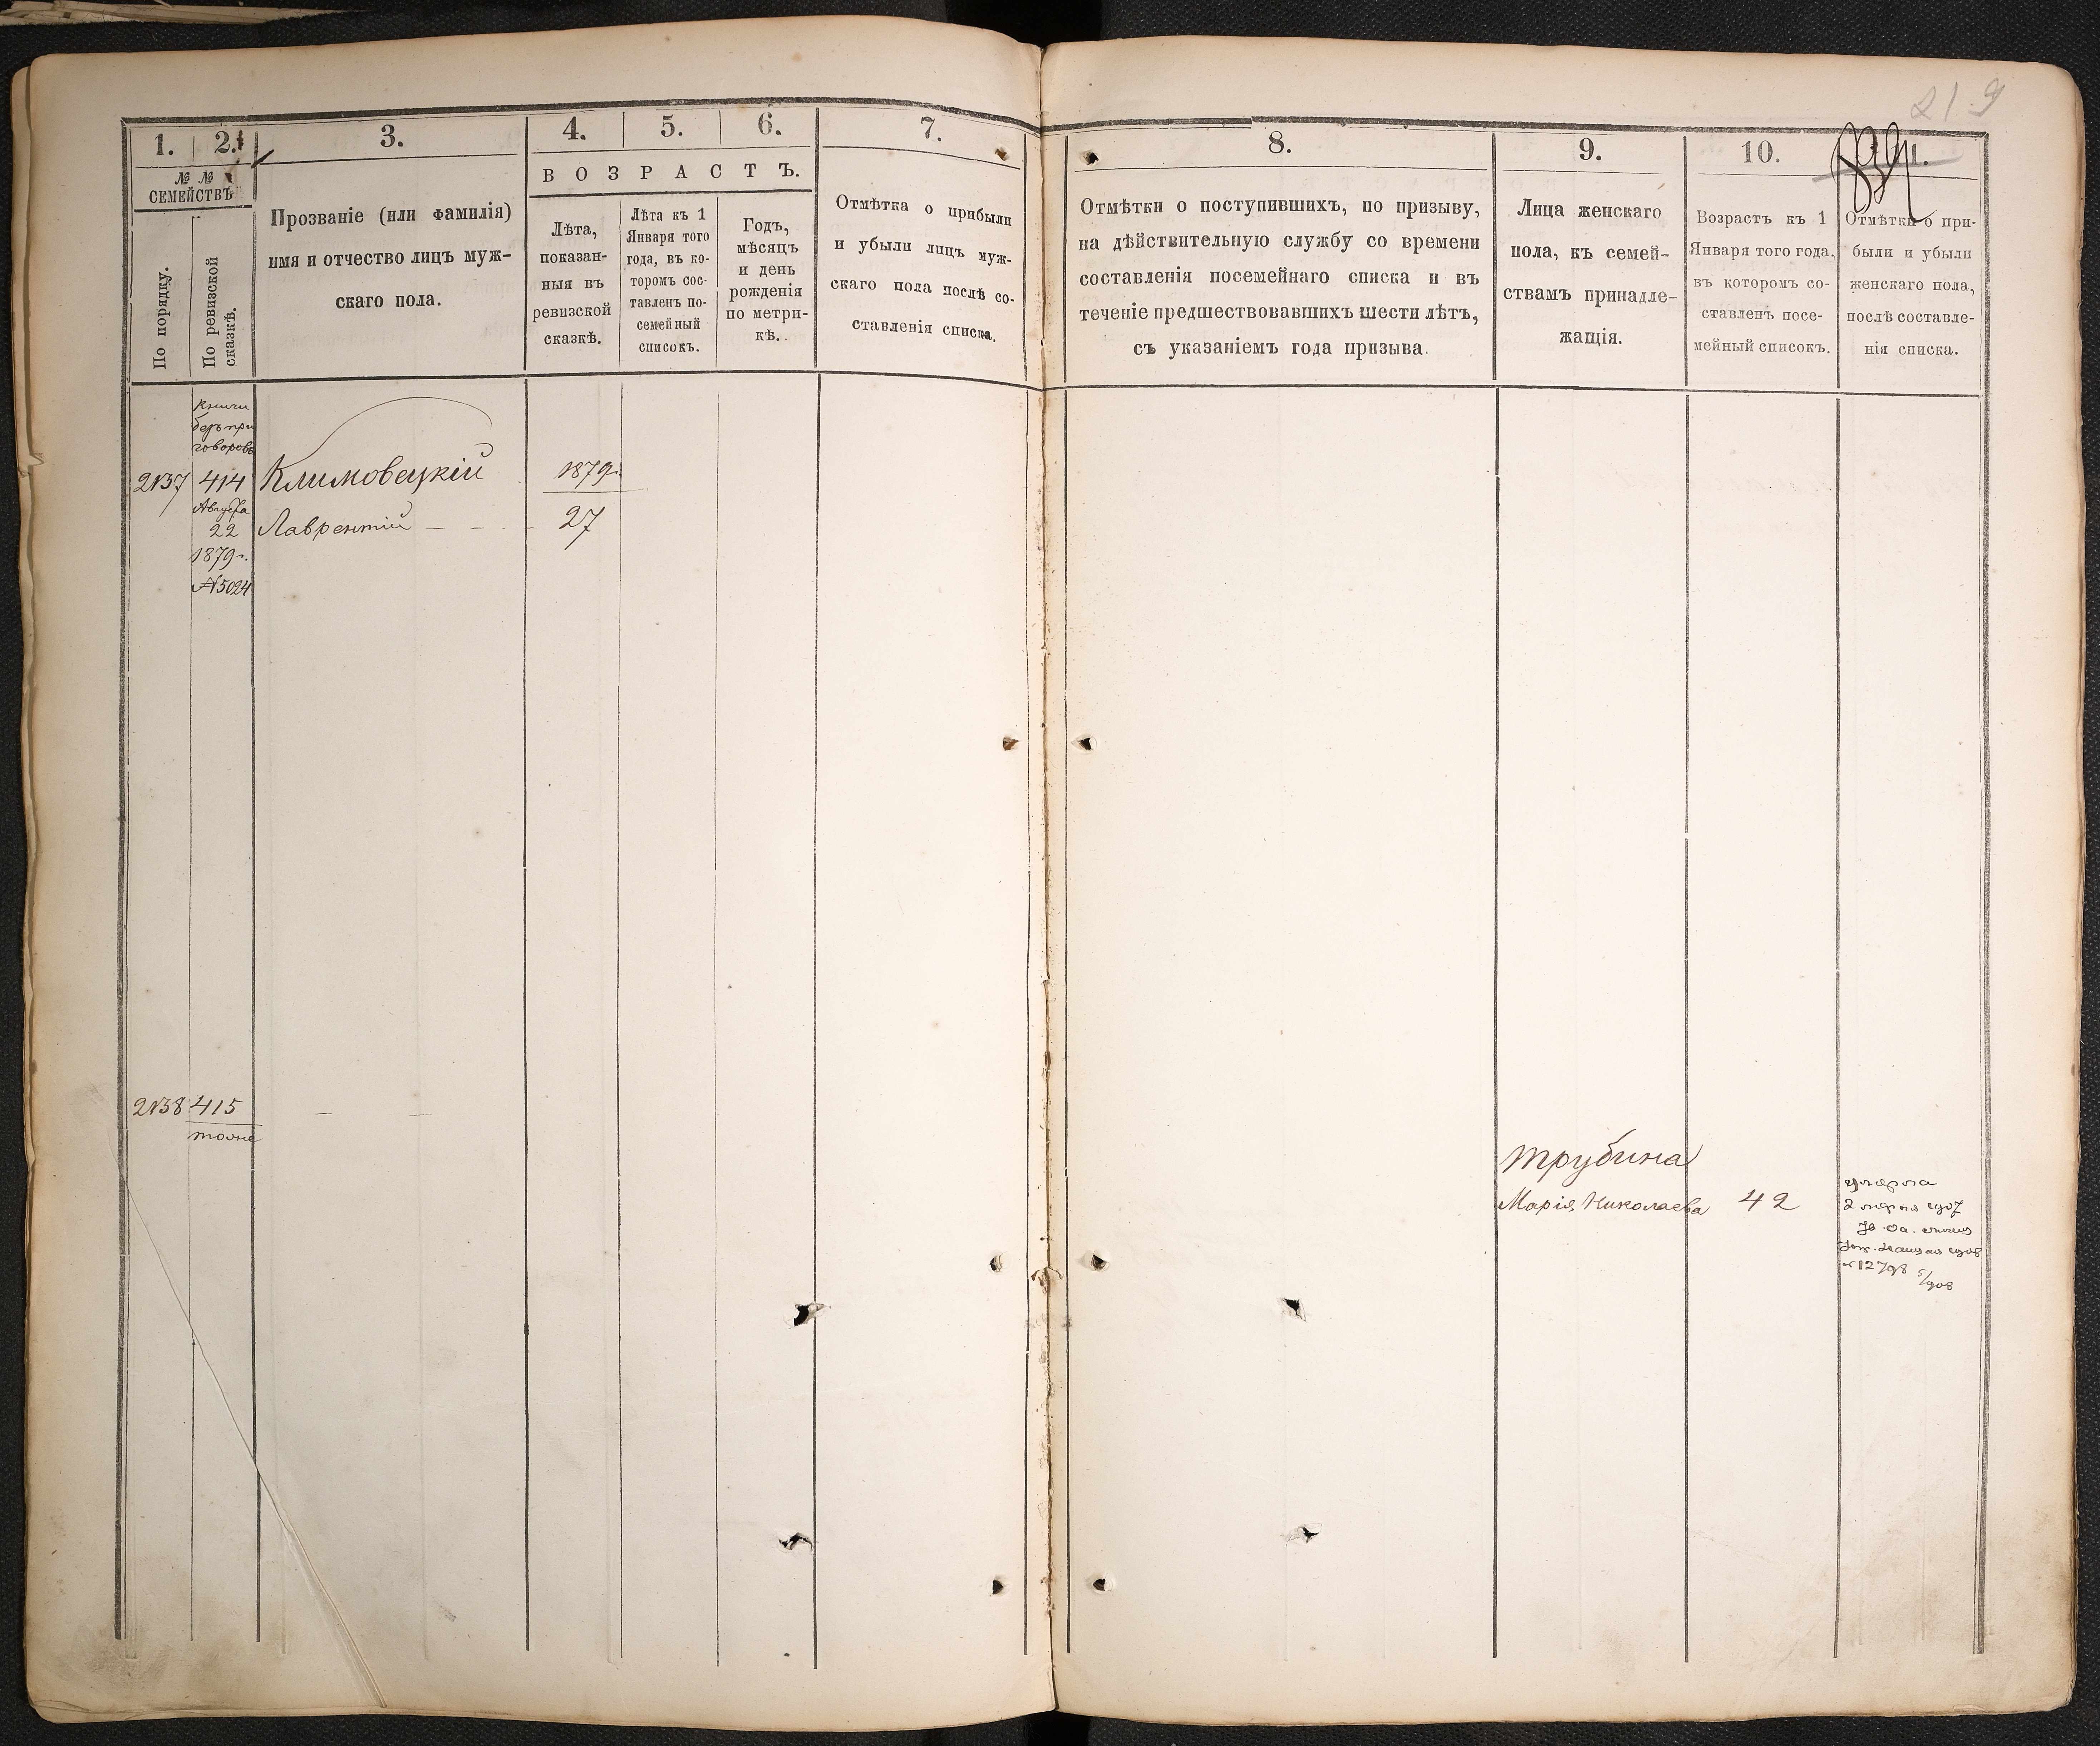 219
1.
2.
3.
4.
5.
6.
7.
№ №
СЕМЕЙСТВЪ
По порядку.
По ревизской
сказкѣ.
Прозваніе (или фамилія)
имя и отчество лицъ муж-
скаго пола.
ВОЗРАСТЪ.
Лѣта,
показан-
ныя въ
ревизской
сказкѣ.
Лѣта къ 1
Января того
года, въ ко-
торомъ сос-
тавленъ по-
семейный
списокъ.
Годъ,
мѣсяцъ
и день
рожденія
по метри-
кѣ.
Отмѣтка о прибыли
и убыли лицъ муж-
скаго пола послѣ со-
ставленія списка.
8.
9.
10.
11.
Отмѣтки о поступившихъ, по призыву,
на дѣйствительную службу со времени
составленія посемейнаго списка и въ
теченіе предшествовавшихъ шести лѣтъ,
съ указаніемъ года призыва.
Лица женскаго
пола, къ семей-
ствамъ принадле-
жащія.
Возрастъ къ 1
Января того года,
въ которомъ со-
ставленъ посе-
мейный списокъ.
Отмѣтки о при-
были и убыли
женскаго пола,
послѣ составле-
нія списка.
Книги
безъ при
говоровъ
2137 414 Климовецкій 1879г.
Августа
22 Лаврентій — — - 27
1879г.
№5024
2138 415 — —
тоже
Трубина
Марія Николаева 42
умерла
2 1907
№12798 5/908